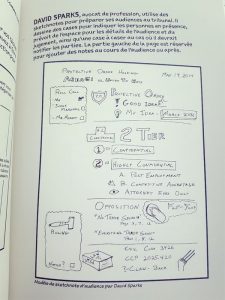 DAVID SPARKS, avocat de profession, utilise des
sketchnotes pour préparer ses audiences au tribunal. Il
dessine des cases pour indiquer les personnes en présence,
prévoit de l'espace pour les détails de l'audience et du
jugement, ainsi qu'une case à cocher au cas où il devrait
notifier les parties. La partie gauche de la page est réservée
pour ajouter des notes au cours de l'audience ou après.
PROTECTIVE ORDER HEARING
MAY 14, 2014
ROLL CALL
PROTECTIVE ORDER
GOOD IDEA
MY IDEA
2 TIER
CONFIDENTIAL
HIGHLY CONFIDENTIAL
A. POST EMPLOYMENT
B. COMPETITIVE ADVANTAGE
ATTORNEY EYES ONLY
OPPOSITION
"NO TRADE SECRETS"
"EVERYTHING TRADE SECRET"
NOTICE?
EVID CODE
CCP
Modèle de sketchnote d'audience par David Sparks